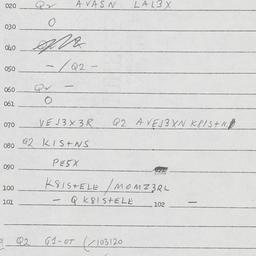 020 Q2 AVASN LAL3X
030 O
040
050 - /Q2 -
060 Q2 -
061 O
070 VE13X3R Q2 AVE13XN K8IS+N
080 Q2 KIS+NS
090 PE5X
100 K8IS+ELE /MOMZ3QL
101 - Q K8IS+ELE 102 -
Q2 G1-OT (/103120